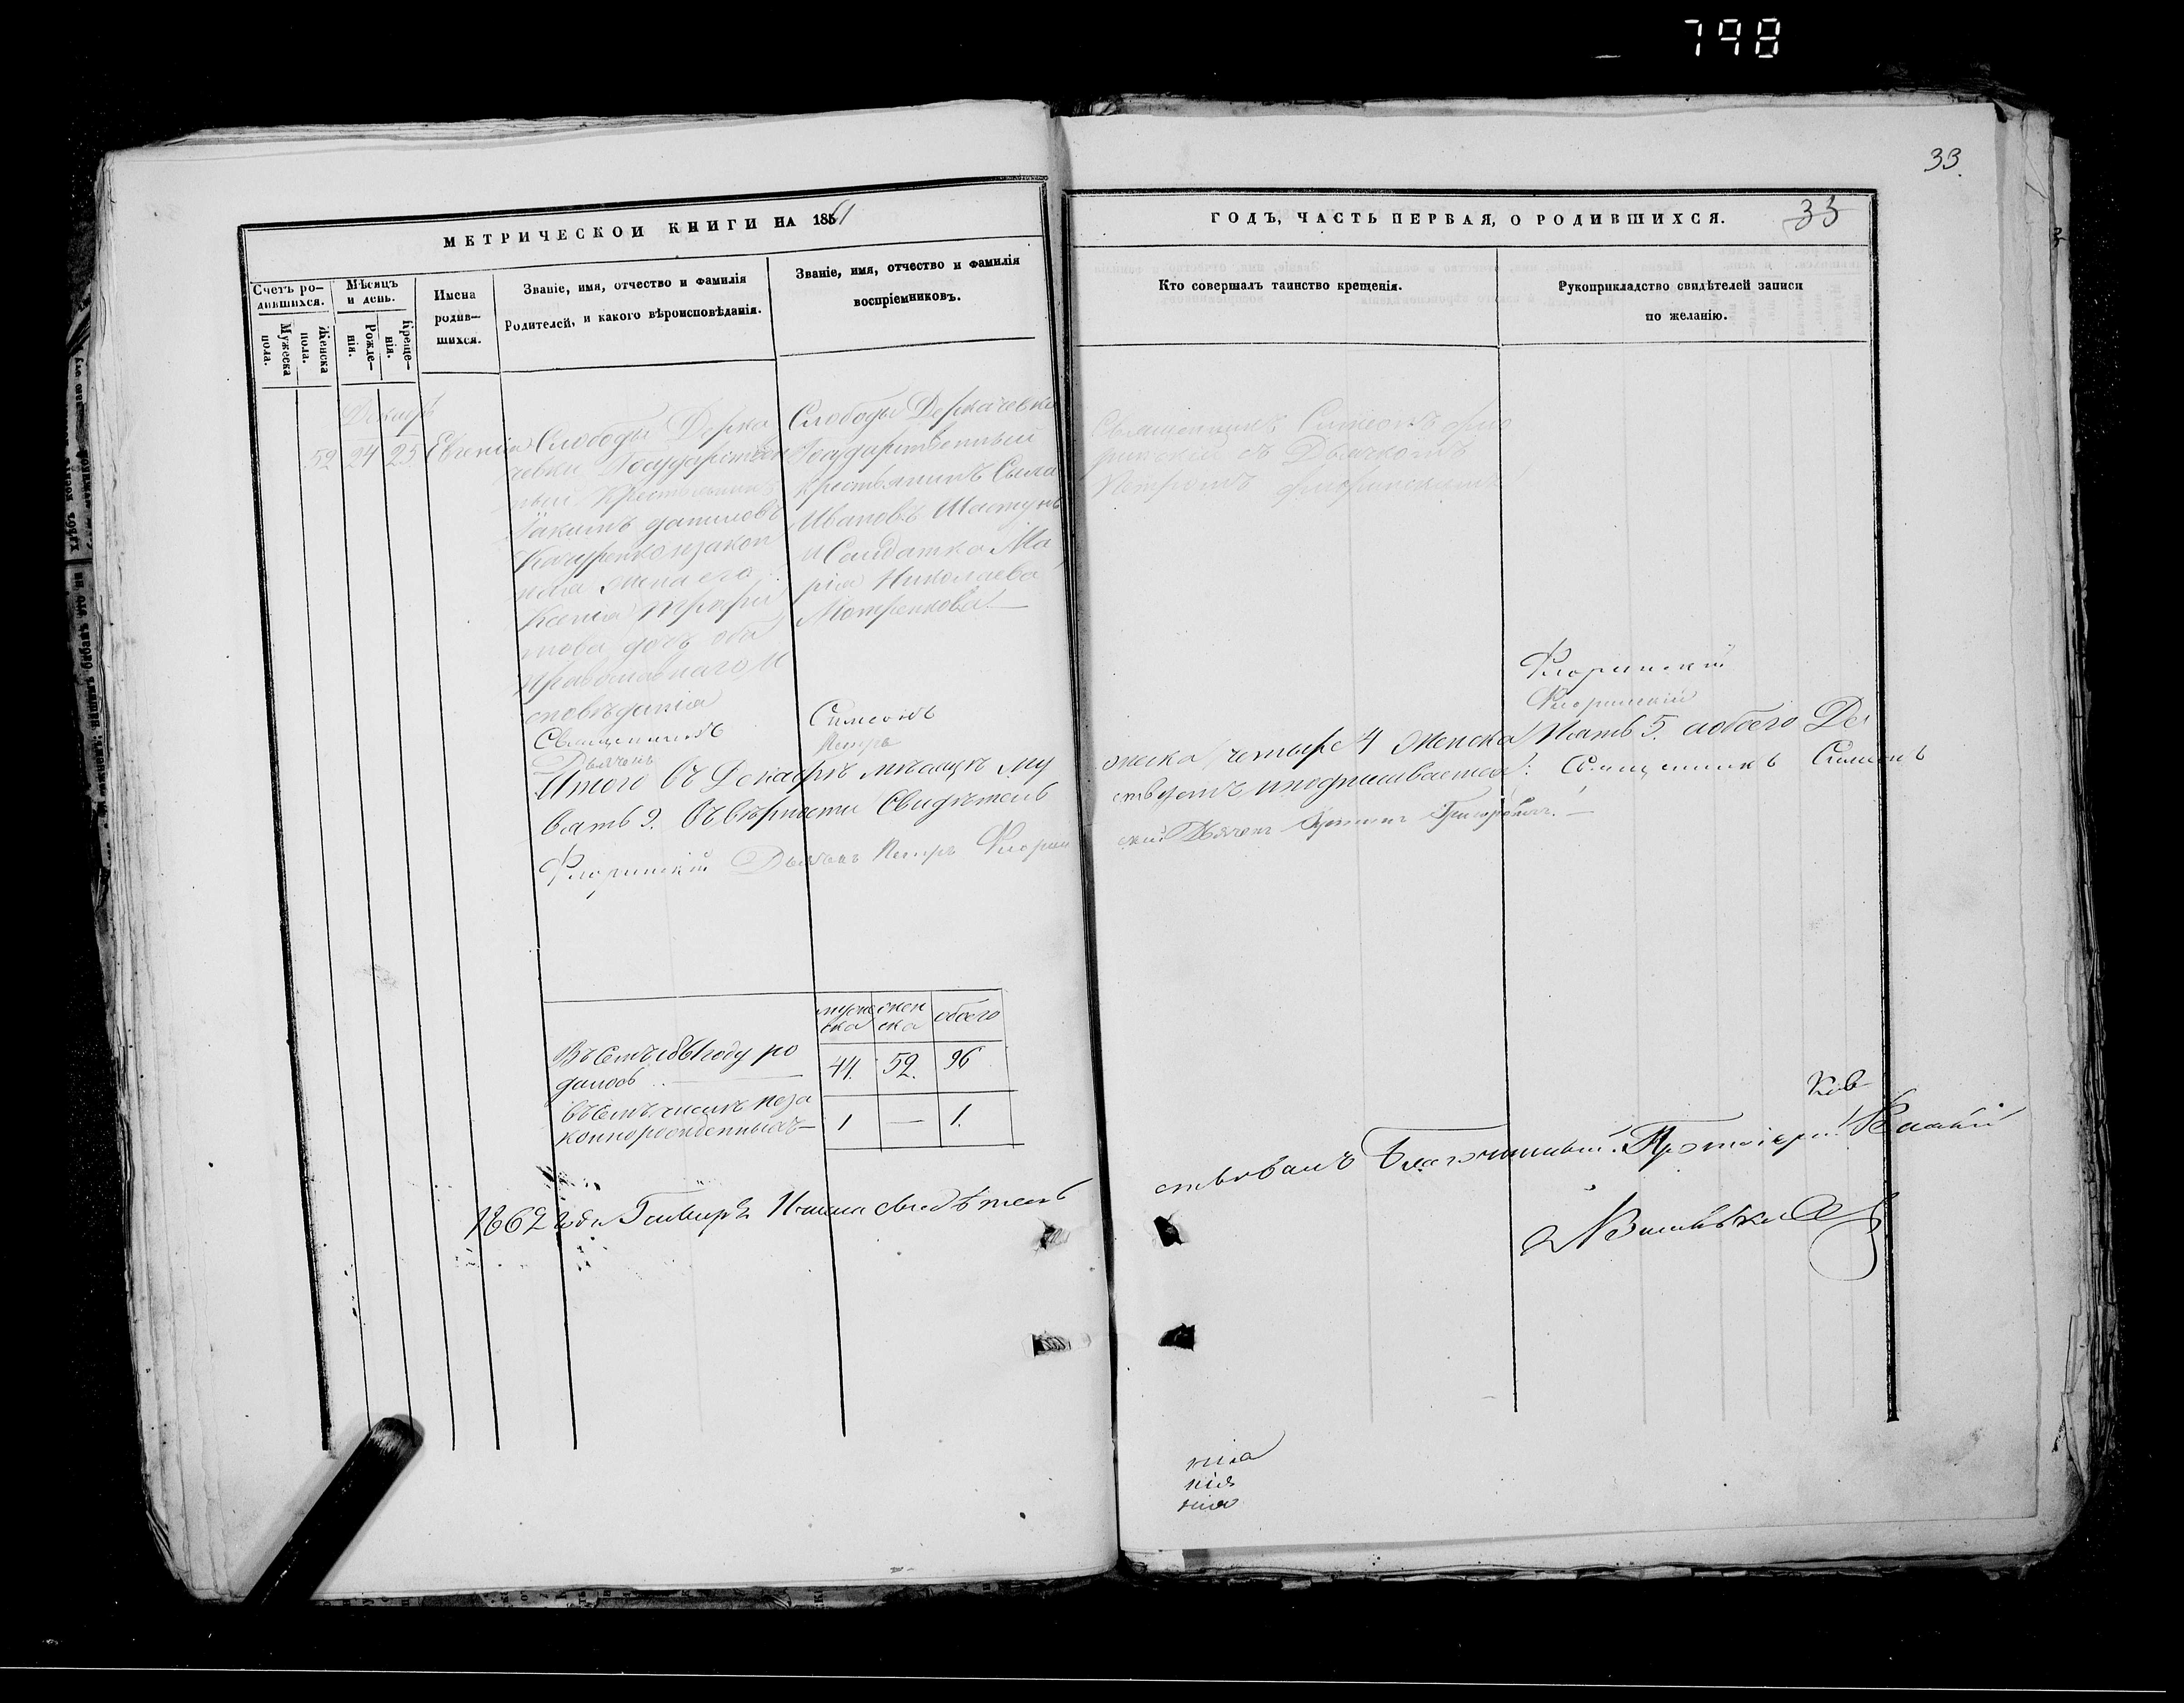 798
33.
МЕТРИЧЕСКОИ КНИГИ НА 1861
Счетъ ро-
дившихся.
Мужеска
пола.
Женска
пола.
Мѣсяцъ
и день.
Рожде-
нія.
Креще-
нія.
Имена
родив-
шихся.
Званіе, имя, отчество и фамилія
Родителей, и какого вѣроисповѣданія.
Званіе, имя, отчество и фамилія
воспріемниковъ.
ГОДЪ, ЧАСТЬ ПЕРВАЯ, О РОДИВШИХСЯ.
33
Кто совершалъ таинство крещенія.
Рукоприкладство свидѣтелей записи
по желанію.
Декабр
52 24 25 Евгенія
Слободы Дерка
чевки Государствен
ный Крестьянинъ
Іакимъ Даниловъ
и закон
ная жена его
Ксенія
оба
православнаго И
сповѣданія
Слободы Деркачевки
Государственный
крестьянинъ Сила
Ивановъ Шастунъ
и Солдатка Ма
рія Николаева
Мотренкова
Священникъ Симеонъ Фло
ринскій съ Дьячкомъ
Петромъ Флоринскимъ
Священникъ Симеонъ Флоринскій
Дьячекъ Петръ Флоринскій
Итого въ Декабрѣ мѣсяцѣ му
жеска четыре 4 женска Пять 5. а обоего Де
вять 9. Въ вѣрности Свидѣтель
ствуемъ и подписываемся: Священникъ Симеонъ
Флоринскій Дьячекъ Петръ Флорин
скій Дьячекъ Григоровичъ.
муже
ска
жен
ска
обоего
Въ семъ 1861 году ро
дилось
44. 52. 96
въ семъ числѣ неза
коннорожденныхъ
1 — 1.
1862 года Генваря
свидѣтель
ствовалъ Благочинный Протоіерей
нія
нія
нія